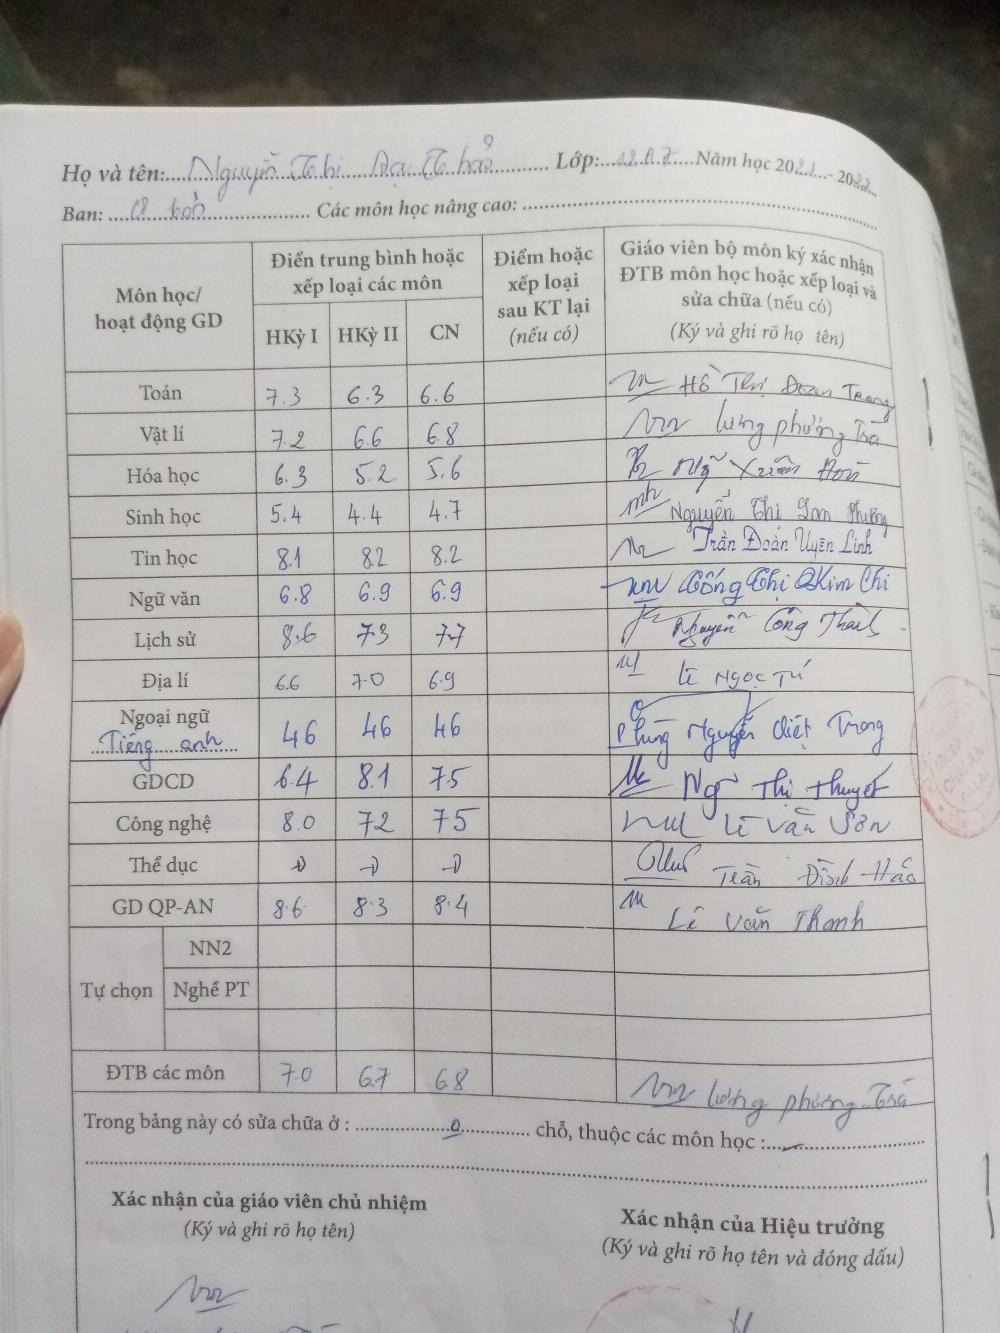 Họ và tên: Nguyễn Thị Dạ Thảo Lớp: 12A7 Năm học 2021 - 2022
Ban: Cơ bản Các môn học nâng cao:
Môn học/ hoạt động GD
Điển trung bình hoặc xếp loại các môn
HKỳ I HKỳ II CN
Điểm hoặc xếp loại sau KT lại (nếu có)
Giáo viên bộ môn ký xác nhận ĐTB môn học hoặc xếp loại và sửa chữa (nếu có)
(Ký và ghi rõ họ tên)
Toán 7.3 6.3 6.6 Hồ Thị Đoan Trang
Vật lí 7.2 6.6 6.8 Lương Phương Trà
Hóa học 6.3 5.2 5.6 Xuân
Sinh học 5.4 4.4 4.7 Nguyễn Thị Lam Phương
Tin học 8.1 8.2 8.2 Trần Đoàn Uyên Linh
Ngữ văn 6.8 6.9 6.9 Tống Thị Kim Chi
Lịch sử 8.6 7.3 7.7 Nguyễn Công Thành
Địa lí 6.6 7.0 6.9 Lê Ngọc Tú
Ngoại ngữ Tiếng anh 4.6 4.6 4.6 Phùng Nguyễn Việt Trong
GDCD 6.4 8.1 7.5 Ng Thị Thuyết
Công nghệ 8.0 7.2 7.5 Lê Văn Sơn
Thể dục Đ Đ Đ Trần Đình
GD QP-AN 8.6 8.3 8.4 Lê Văn Thanh
Tự chọn
NN2
Nghề PT
ĐTB các môn 7.0 6.7 6.8 Lương Phương Trà
Trong bảng này có sửa chữa ở : 0 chỗ, thuộc các môn học :
Xác nhận của giáo viên chủ nhiệm
(Ký và ghi rõ họ tên)
Xác nhận của Hiệu trưởng
(Ký và ghi rõ họ tên và đóng dấu)